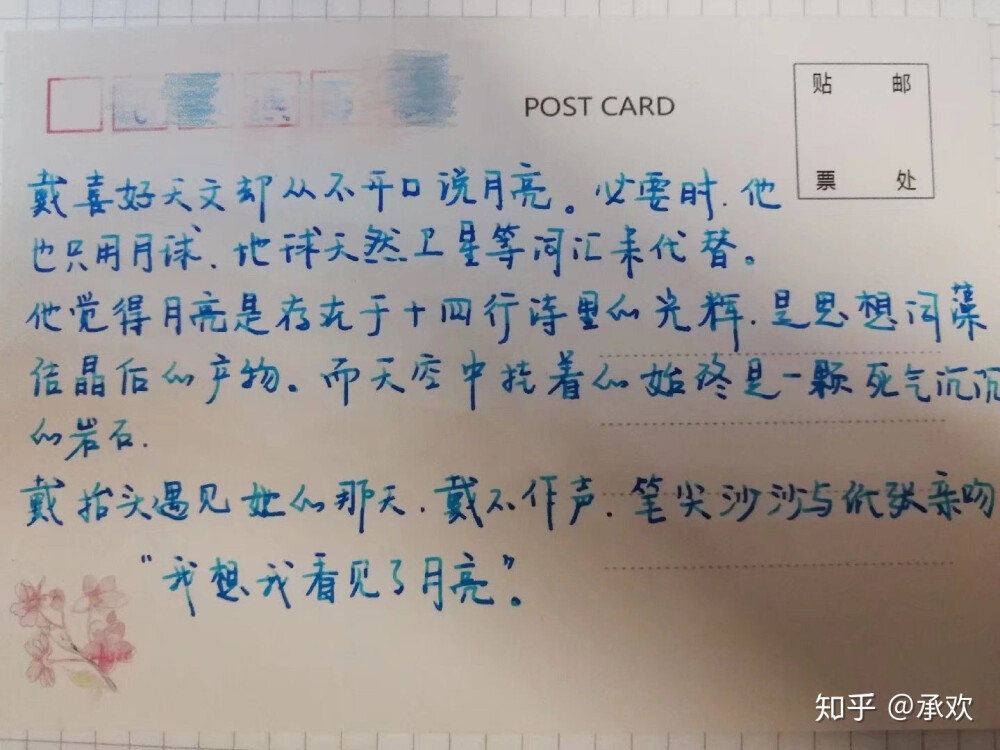 POST CARD
贴 邮
票 处
戴喜好天文却从不开口说月亮。必要时,他
也只用月球、地球天然卫星等词汇来代替。
他觉得月亮是存在于十四行诗里的光辉,是思想词藻
结晶后的产物。而天空中挂着的始终是一颗死气沉沉
的岩石.
戴抬头遇见她的那天,戴不作声,笔尖沙沙与纸张亲吻
“我想我看见了月亮”。
知乎 @承欢